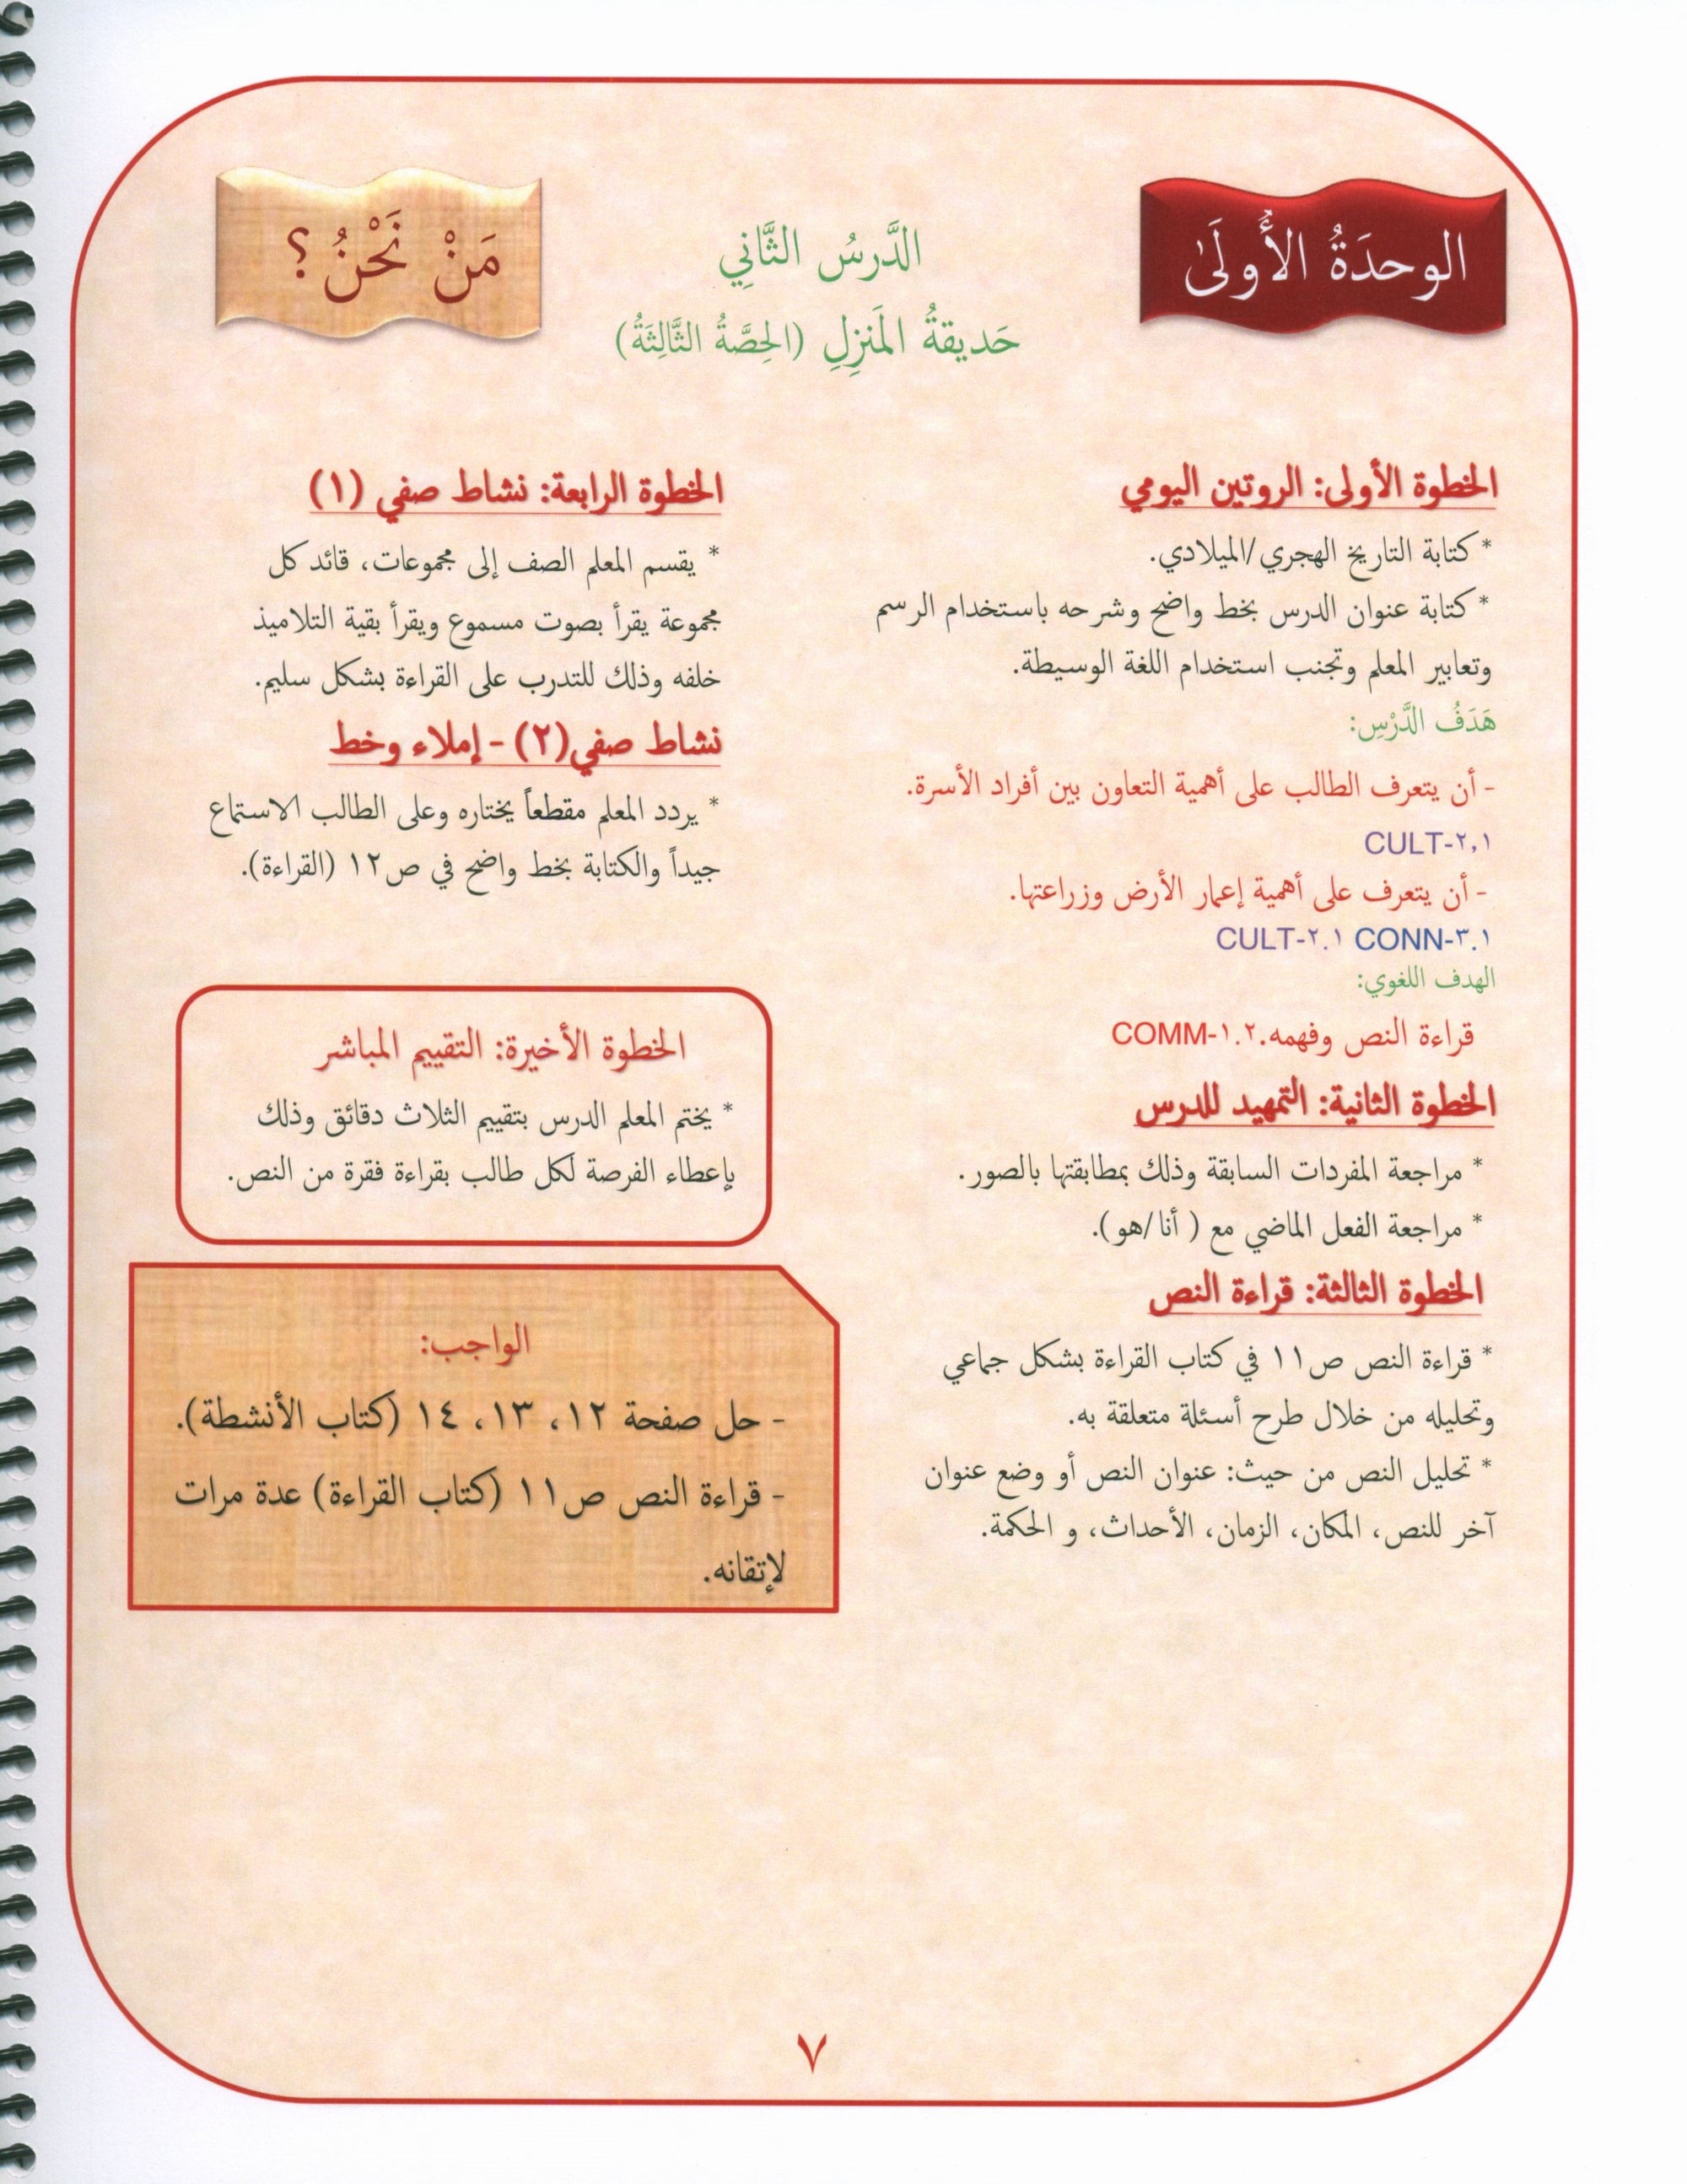 الوحدَةُ الأُولَىٰ
الدَّرسُ الثَّانِي
حَديقةُ المَنزِلِ (الحِصَّةُ الثَّالِثَةُ)
مَنْ نَحْنُ؟
الخطوة الأولى: الروتين اليومي
* كتابة التاريخ الهجري/الميلادي.
* كتابة عنوان الدرس بخط واضح وشرحه باستخدام الرسم
وتعابير المعلم وتجنب استخدام اللغة الوسيطة.
هَدَفُ الدَّرْسِ:
- أن يتعرف الطالب على أهمية التعاون بين أفراد الأسرة.
CULT-٢,١
- أن يتعرف على أهمية إعمار الأرض وزراعتها.
CULT-٢.١ CONN-٣.١
الهدف اللغوي:
قراءة النص وفهمه.COMM-١.٢
الخطوة الثانية: التمهيد للدرس
* مراجعة المفردات السابقة وذلك بمطابقتها بالصور.
* مراجعة الفعل الماضي مع ( أنا/هو).
الخطوة الثالثة: قراءة النص
* قراءة النص ص١١ في كتاب القراءة بشكل جماعي
وتحليله من خلال طرح أسئلة متعلقة به.
* تحليل النص من حيث: عنوان النص أو وضع عنوان
آخر للنص، المكان، الزمان، الأحداث، و الحكمة.
الخطوة الرابعة: نشاط صفي (١)
* يقسم المعلم الصف إلى مجموعات، قائد كل
مجموعة يقرأ بصوت مسموع ويقرأ بقية التلاميذ
خلفه وذلك للتدرب على القراءة بشكل سليم.
نشاط صفي(٢) - إملاء وخط
* يردد المعلم مقطعاً يختاره وعلى الطالب الاستماع
جيداً والكتابة بخط واضح في ص١٢ (القراءة).
الخطوة الأخيرة: التقييم المباشر
* يختم المعلم الدرس بتقييم الثلاث دقائق وذلك
بإعطاء الفرصة لكل طالب بقراءة فقرة من النص.
الواجب:
- حل صفحة ١٢، ١٣، ١٤ (كتاب الأنشطة).
- قراءة النص ص١١ (كتاب القراءة) عدة مرات
لإتقانه.
٧